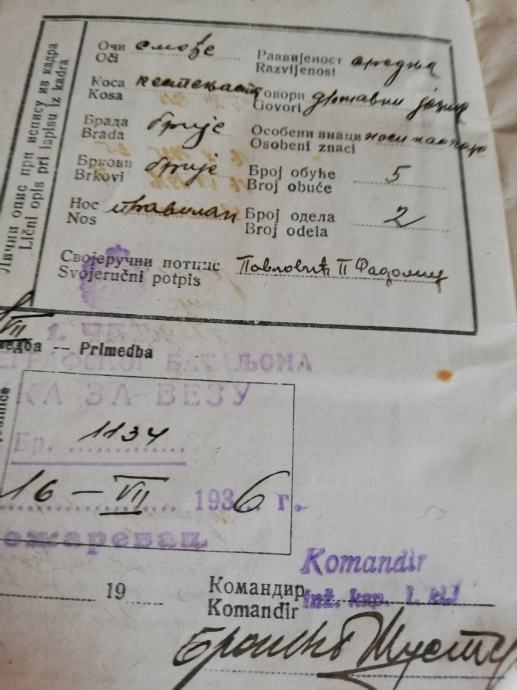 Лични опис при испису из кадра
Lični opis pri ispisu iz kadra
Очи смеђе
Oči
Коса кестењаста
Kosa
Брада брије
Brada
Бркови брије
Brkovi
Нос правилан
Nos
Развијеност средња
Razvijenost
Говори државни језик
Govori
Особени знаци носи наочаре
Osobeni znaci
Број обуће 5
Broj obuće
Број одела 2
Broj odela
Својеручни потпис Павловић П
Svojeručni potpis
VII
— Primedba
БАТАЉОНА
КА ЗА ВЕЗУ
Бр. 1134
16 – VII 1936 г.
ожаревац
19
Командир
Komandir
Komandir
inž. kap. I. kl.